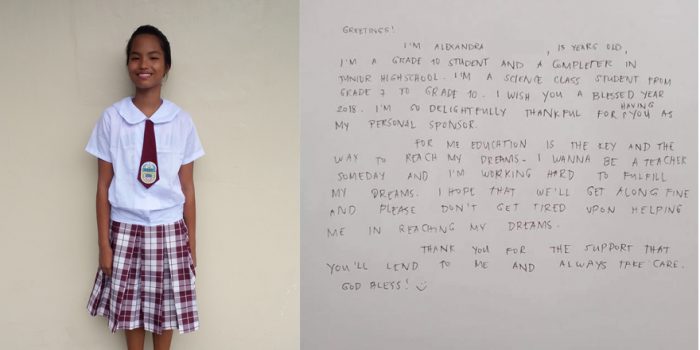 GREETINGS!
I'M ALEXANDRA , 15 YEARS OLD,
I'M A GRADE 10 STUDENT AND A COMPLETER IN
JUNIOR HIGHSCHOOL. I'M A SCIENCE CLASS STUDENT FROM
GRADE 7 TO GRADE 10. I WISH YOU A BLESSED YEAR
2018. I'M SO DELIGHTFULLY THANKFUL FOR HAVING YOU AS
MY PERSONAL SPONSOR.
FOR ME EDUCATION IS THE KEY AND THE
WAY TO REACH MY DREAMS. I WANNA BE A TEACHER
SOMEDAY AND I'M WORKING HARD TO FULFILL
MY DREAMS. I HOPE THAT WE'LL GET ALONG FINE
AND PLEASE DON'T GET TIRED UPON HELPING
ME IN REACHING MY DREAMS.
THANK YOU FOR THE SUPPORT THAT
YOU'LL LEND TO ME AND ALWAYS TAKE CARE.
GOD BLESS!